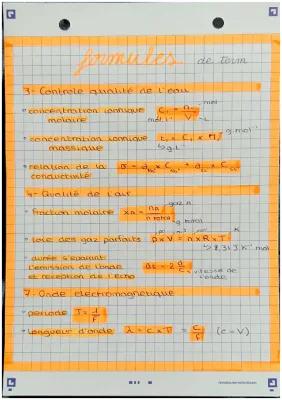 formules de term
3- Controle qualité de l'eau
• concentration ionique molaire Ci = n / V mol mol.L⁻¹ L
• concentration ionique massique ti = Ci × Mi g.mol⁻¹
↳ g.L⁻¹
• relation de la conductivité σ =
4- Qualité de l'air
• fraction molaire xA = nA / n total gaz n
n total
• loi des gaz parfaits p × V = n × R × T
↳ 8,31 J K⁻¹ mol
• durée séparant l'émission de l'onde et réception de l'écho Δt = 2 d / c → vitesse de l'onde
7- Onde électromagnétique
• periode T = 1 / f
• longueur d'onde λ = c × T = c / f (c = V)